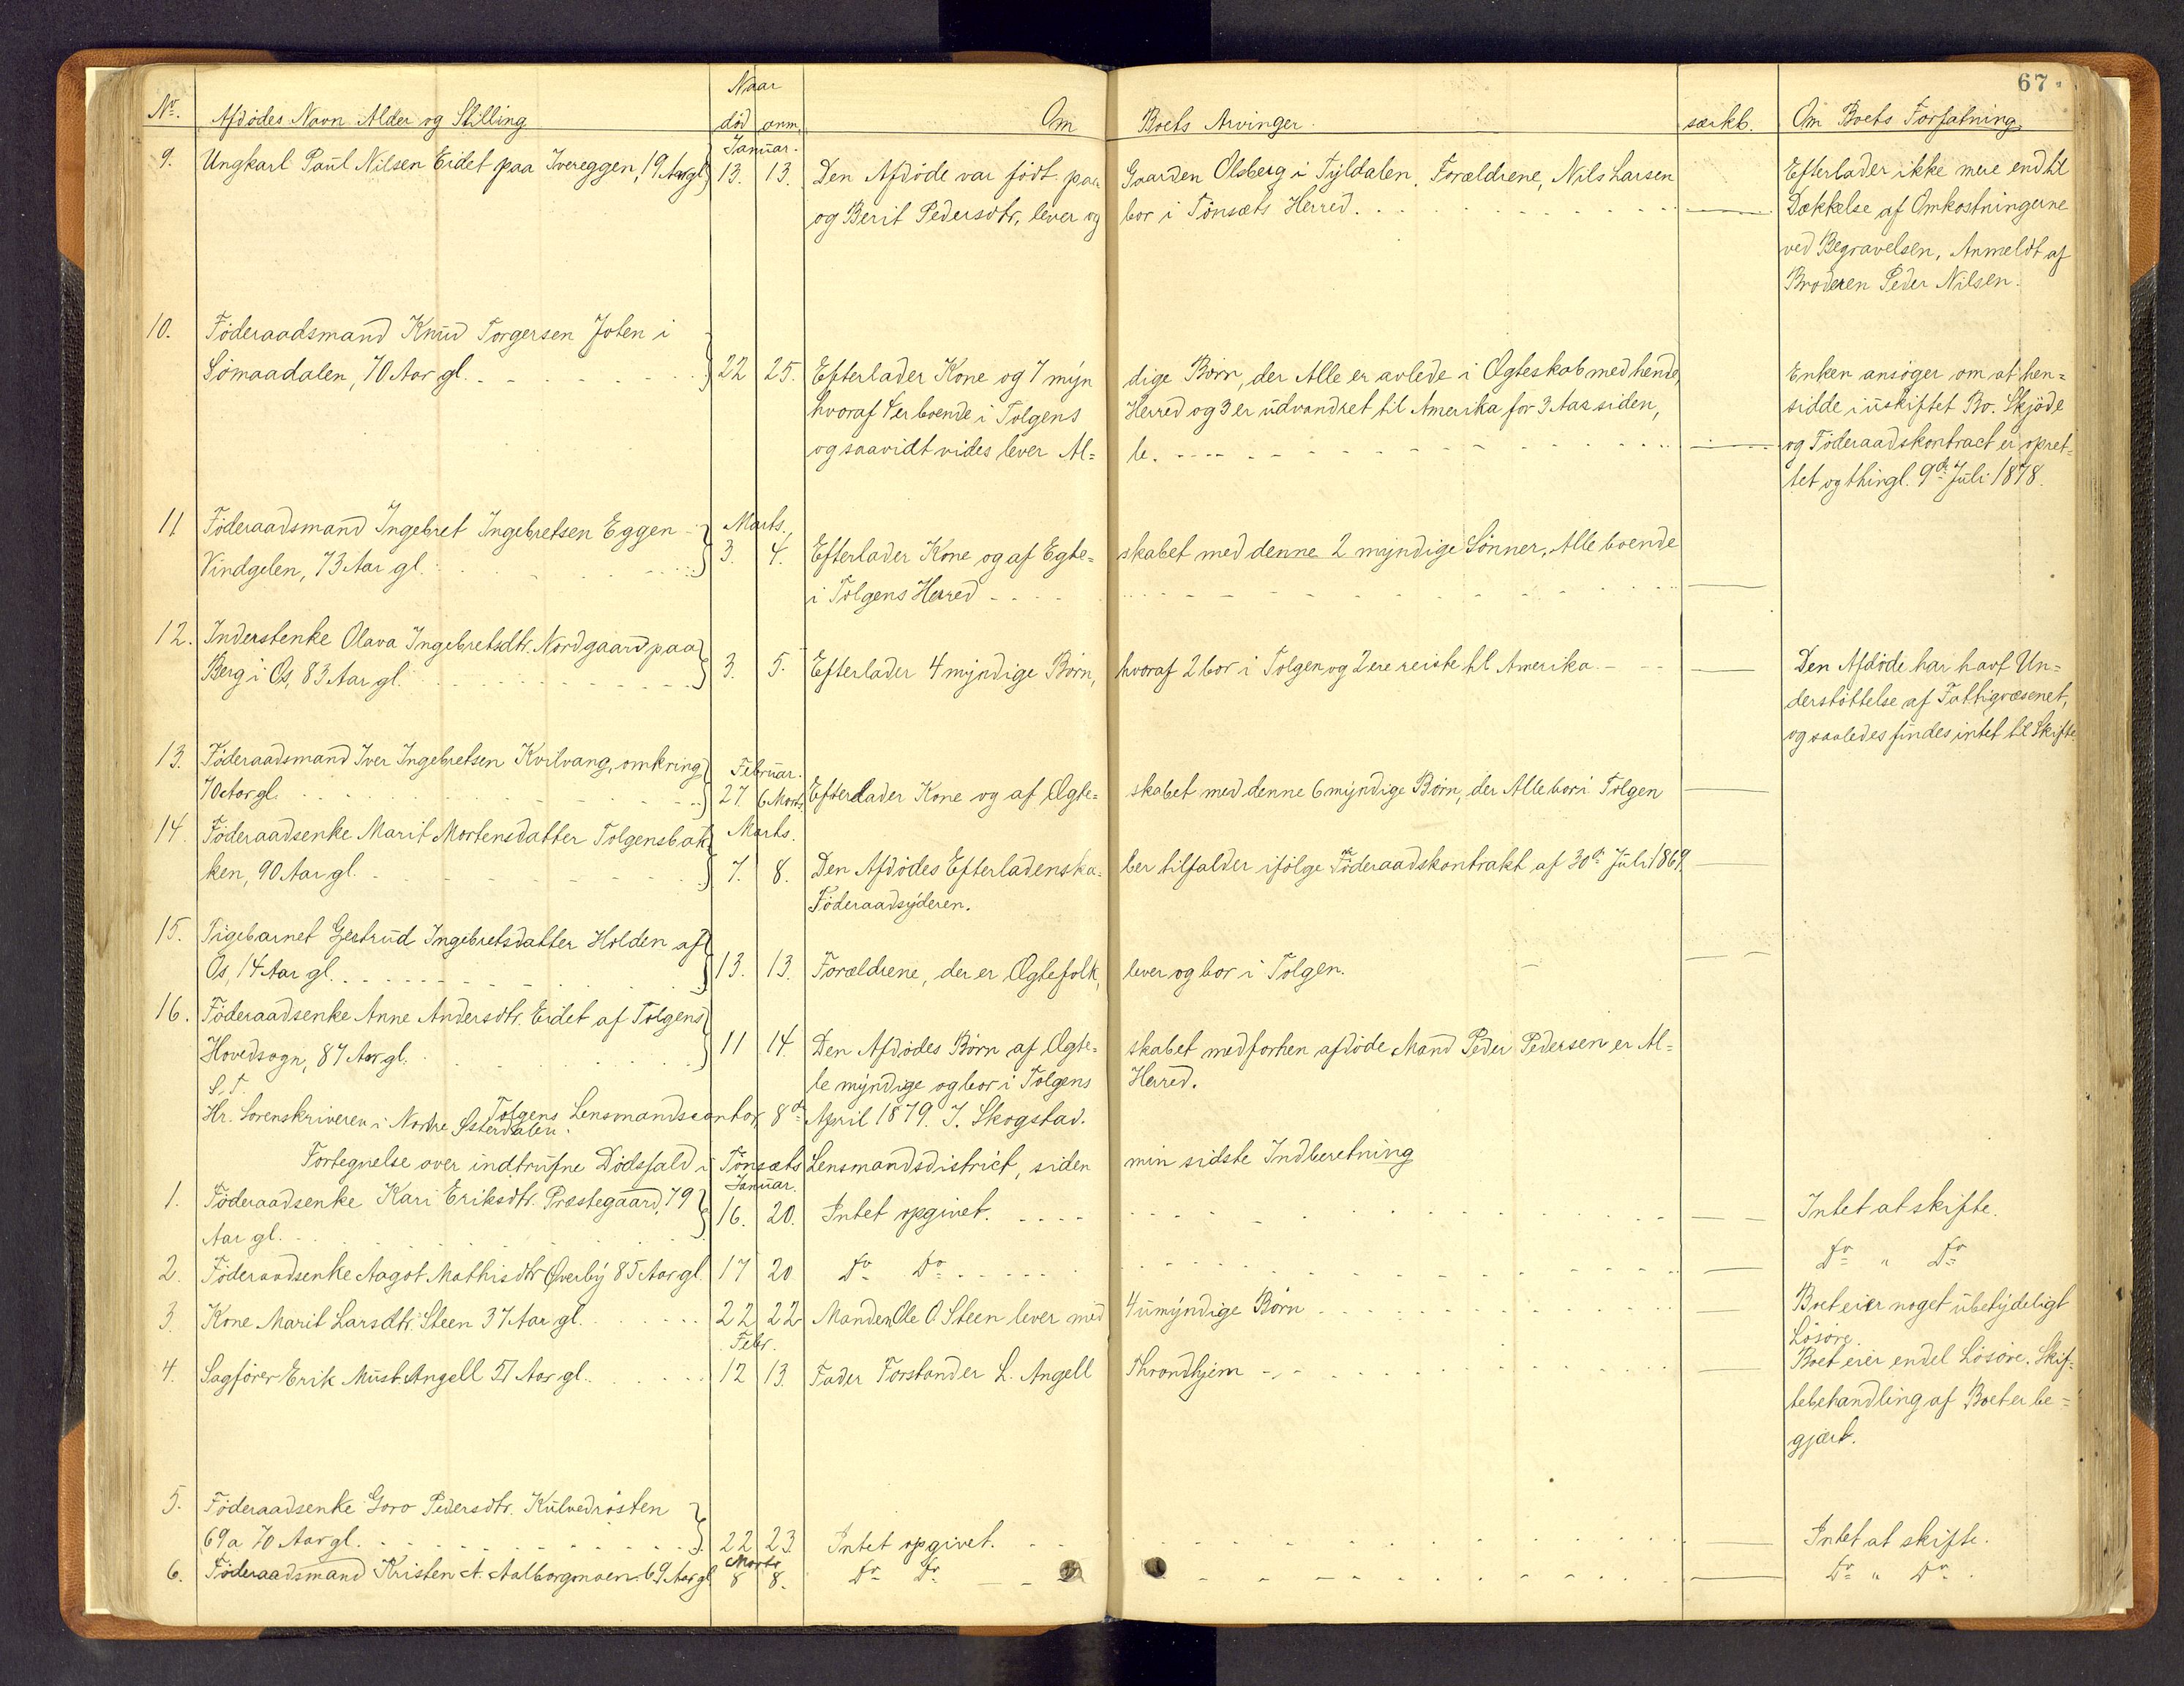 67.
Naar
Nr. Afdødes Navn Alder og Stilling død anm. Om Boets Arvinger. særkb. Om Boets Forfatning
Januar.
9. Ungkarl Paul Nilsen Eidet paa Ivereggen, 19 Aar gl. 13. 13. Den Afdøde var født paa Gaarden Olsberg i Tyldalen. Forældrene, Nils Larsen Efterlader ikke mere end til
og Berit Pedersdtr, lever og bor i Tønsæts Herred. Dækkelse af Omkostningerne
ved Begravelsen, Anmeldt af
Broderen Peder Nilsen.
10. Föderaadsmand Knud Torgersen Joten i
Sömaadalen, 70 Aar gl. 22 25. Efterlader Kone og 7 myn dige Børn, der Alle er avlede i Ægteskab med hende, Enken ansöger om at hen=
hvoraf 4 er boende i Tolgens Herred og 3 er udvandret til Amerika for 3 Aar siden, sidde i uskiftet Bo. Skjöde
og saavidt vides lever Al= le. og Föderaadskontract er opret=
tet og thingl. 9de Juli 1878.
11 Föderaadsmand Ingebret Ingebretsen Eggen Marts.
Vindgelen, 73 Aar gl. 3. 4. Efterlader Kone og af Egte= skabet med denne 2 myndige Sönner, Alle boende
i Tolgens Herred
12. Inderstenke Olava Ingebretsdtr. Nordgaard paa
Berg i Os, 83 Aar gl. 3. 5. Efterlader 4 myndige Børn, hvoraf 2 bor i Tolgen og 2 ere reiste til Amerika. Den Afdöde har havt Un=
derstöttelse af Fattigvæsenet,
og saaledes findes intet til Skifte.
13. Föderaadsmand Iver Ingebretsen Kvilvang, omkring Februar.
70 Aar gl. 27 6 Marts. Efterlader Kone og af Ægte= skabet med denne 6 myndige Børn, der Alle bor i Tolgen
14. Föderaadsenke Marit Mortensdatter Tolgensbak Marts.
ken, 90 Aar gl. 7. 8. Den Afdödes Efterladenska= ber tilfalder ifölge Föderaadskontrakt af 30de Juli 1869.
Föderaadsyderen.
15. Pigebarnet Gjertrud Ingebretsdatter Holden af
Os, 14 Aar gl. 13. 13. Forældrene, der er Ægtefolk, lever og bor i Tolgen.
16. Föderaadsenke Anne Andersdtr. Eidet af Tolgens
Hovedsogn, 87 Aar gl. 11 14. Den Afdödes Börn af Ægte= skabet med forhen afdöde Mand Peder Pedersen er Al=
S. T. le myndige og bor i Tolgens Herred.
Tolgens Lensmandscontor, 8de April 1879. J. Skogstad.
Hr. Sorenskriveren i Nordre Østerdalen.
Fortegnelse over indtrufne Dödsfald i Tönsæts Lensmandsdistrict, siden min sidste Indberetning
Januar.
1. Föderaadsenke Kari Eriksdtr. Præstegaard, 79 16. 20. Intet opgivet. Intet at skifte.
Aar gl.
2. Föderaadsenke Aagot Mathisdtr Øverby 85 Aar gl. 17 20 Do Do Do " Do
3. Kone Marit Larsdtr. Steen 37 Aar gl. 22 22 Manden Ole O. Steen lever med 4 umyndige Børn Boet eier noget ubetydeligt
Lösöre.
Febr.
4. Sagförer Erik Must Angell 51 Aar gl. 12 13. Fader Forstander L. Angell Throndhjem Boet eier endel Lösöre. Skif=
tebehandling af Boet er be=
gjært.
5. Föderaadsenke Goro Pedersdtr. Kulvedrösten
69 a 70 Aar gl. 22 23 Intet opgivet. Intet at skifte.
Marts
6. Föderaadsmand Kristen A. Aalborgmoen 69 Aar gl 8 8. Do Do Do " Do.